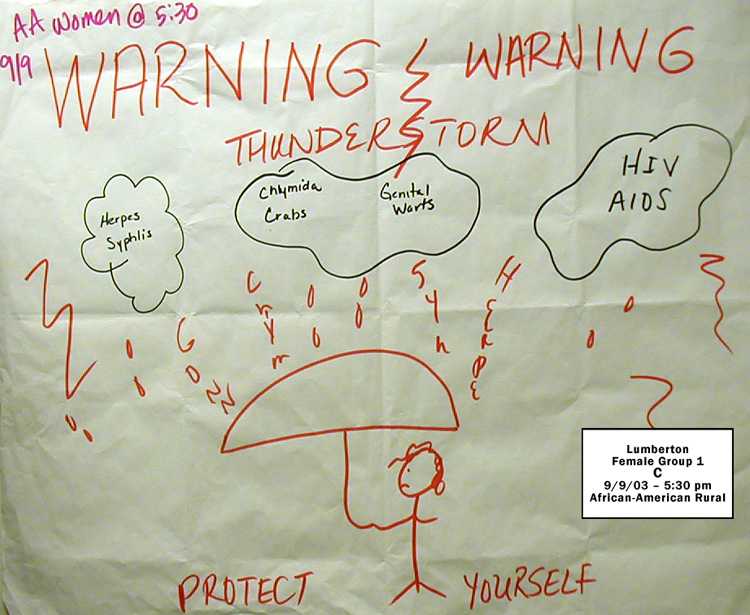 AA women @ 5:30
9/9
WARNING WARNING
THUNDERSTORM
Herpes
Syphlis
Chymida
Crabs
Genital
Warts
HIV
AIDS
GONN
Chym
Syh
HERPE
PROTECT YOURSELF
Lumberton
Female Group 1
C
9/9/03 – 5:30 pm
African-American Rural